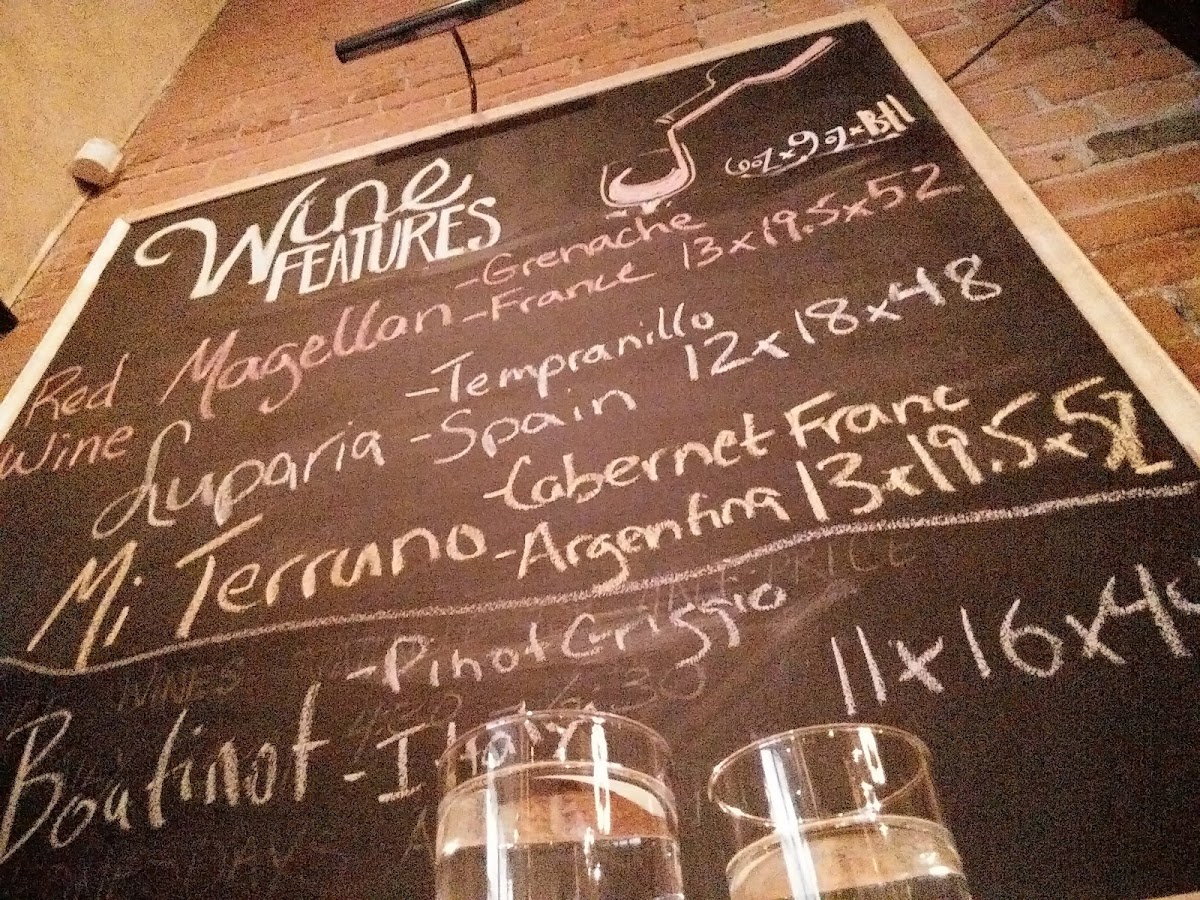 Wine
FEATURES
6oz x 9oz x Btl
Red
Wine
Magellan
-Grenache
-France
13x19.5x52
Luparia
-Tempranillo
-Spain
12x18x48
Mi Terruno
-Cabernet Franc
-Argentina
13x19.5x52
Boutinot
-Pinot Grissio
-Italy
11x16x4